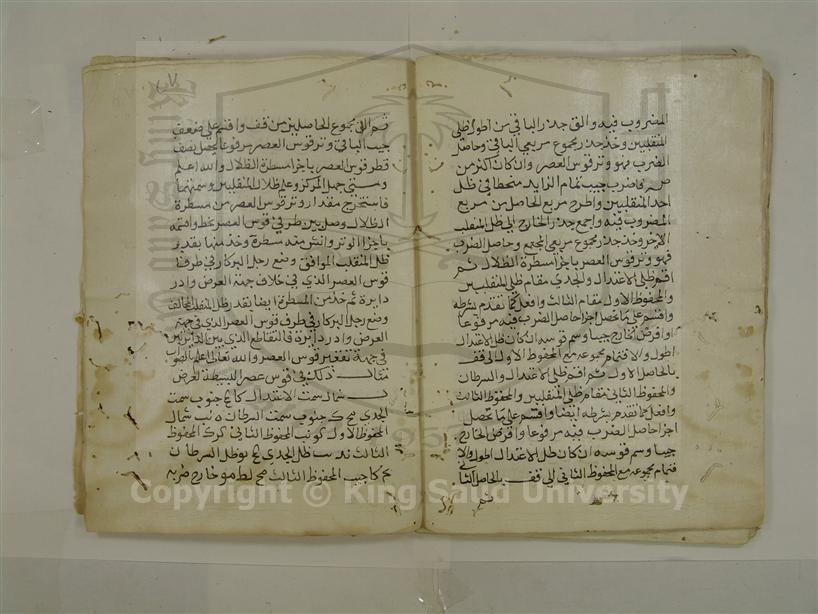 المضروب فيه والق جذر الباقي من اطول ظلي
المنقلبين وخذ جذر مجموع مربعي الباقي وحاصل
الضرب فهو وتر قوس العصر وان كان اكثر من
فاضرب جيب تمام الزايد منحطا في ظل
احد المنقلبين واطرح مربع الحاصل من مربع
المضروب فيه واجمع جذر الخارج الى ظل المنقلب
الاخر وخذ جذر مجموع مربعي المجتمع وحاصل الضرب
فهو وتر قوس العصر باجزا مسطرة الظلال ثم
اقم ظلي الاعتدال والجدي مقام ظلي المنقلبين
والمحفوظ الاول مقام الثالث وافعل كما تقدم بشرطه
واقسم على ما يحصل اجزا حاصل الضرب فيه مرفوعا
وافرض الخارج جيبا وسم قوسه ان كان ظل الاعتدال
اطول والا فتمام مجموعه مع المحفوظ الاول الى قف
بالحاصل الاول ثم اقم ظلي الاعتدال والسرطان
والمحفوظ الثاني مقام ظلي المنقلبين والمحفوظ الثالث
وافعل كما تقدم بشرطه ايضا واقسم على ما يحصل
اجزا حاصل الضرب فيه مرفوعا وافرض الخارج
جيبا وسم قوسه ان كان ظل الاعتدال اطول والا
فتمام مجموعه مع المحفوظ الثاني الى قف بالحاصل الثاني
ثم
ثم الق مجموع الحاصلين من قف واقسم على ضعف
جيب الباقي وتر قوس العصر مرفوعا يحصل نصف
قطر قوس العصر باجزا مسطرة الظلال والله اعلم
ومتى جهل المركز وعلم ظلال المنقلبين وسمتهما
فاستخرج مقدار وتر قوس العصر من مسطرة
الظلال وصل بين طرفي قوس العصر بخط واقسمه
باجزا الوتر وانشئ منه مسطرة وخذ منها بقدر
ظل المنقلب الموافق وضع رجل البركار في طرف
قوس العصر الذي في خلاف جهة العرض وادر
دايرة ثم خذ من المسطرة ايضا بقدر ظل المنقلب المخالف
وضع رجل البركار في طرف قوس العصر الذي في جهة
العرض وادر دايرة فالتقاطع الذي بين الدايرتين
في جهة تقعير قوس العصر والله تعالى اعلم بالصواب
مثال ذلك في قوس عصر البسيطة لعرض
شمال سمت الاعتدال جنوب سمت
الجدي جنوب سمت السرطان شمال
المحفوظ الاول المحفوظ الثاني المحفوظ
الثالث ظل الجدي ظل السرطان
جيب المحفوظ الثالث خارج ضربه
Copyright © King Saud University